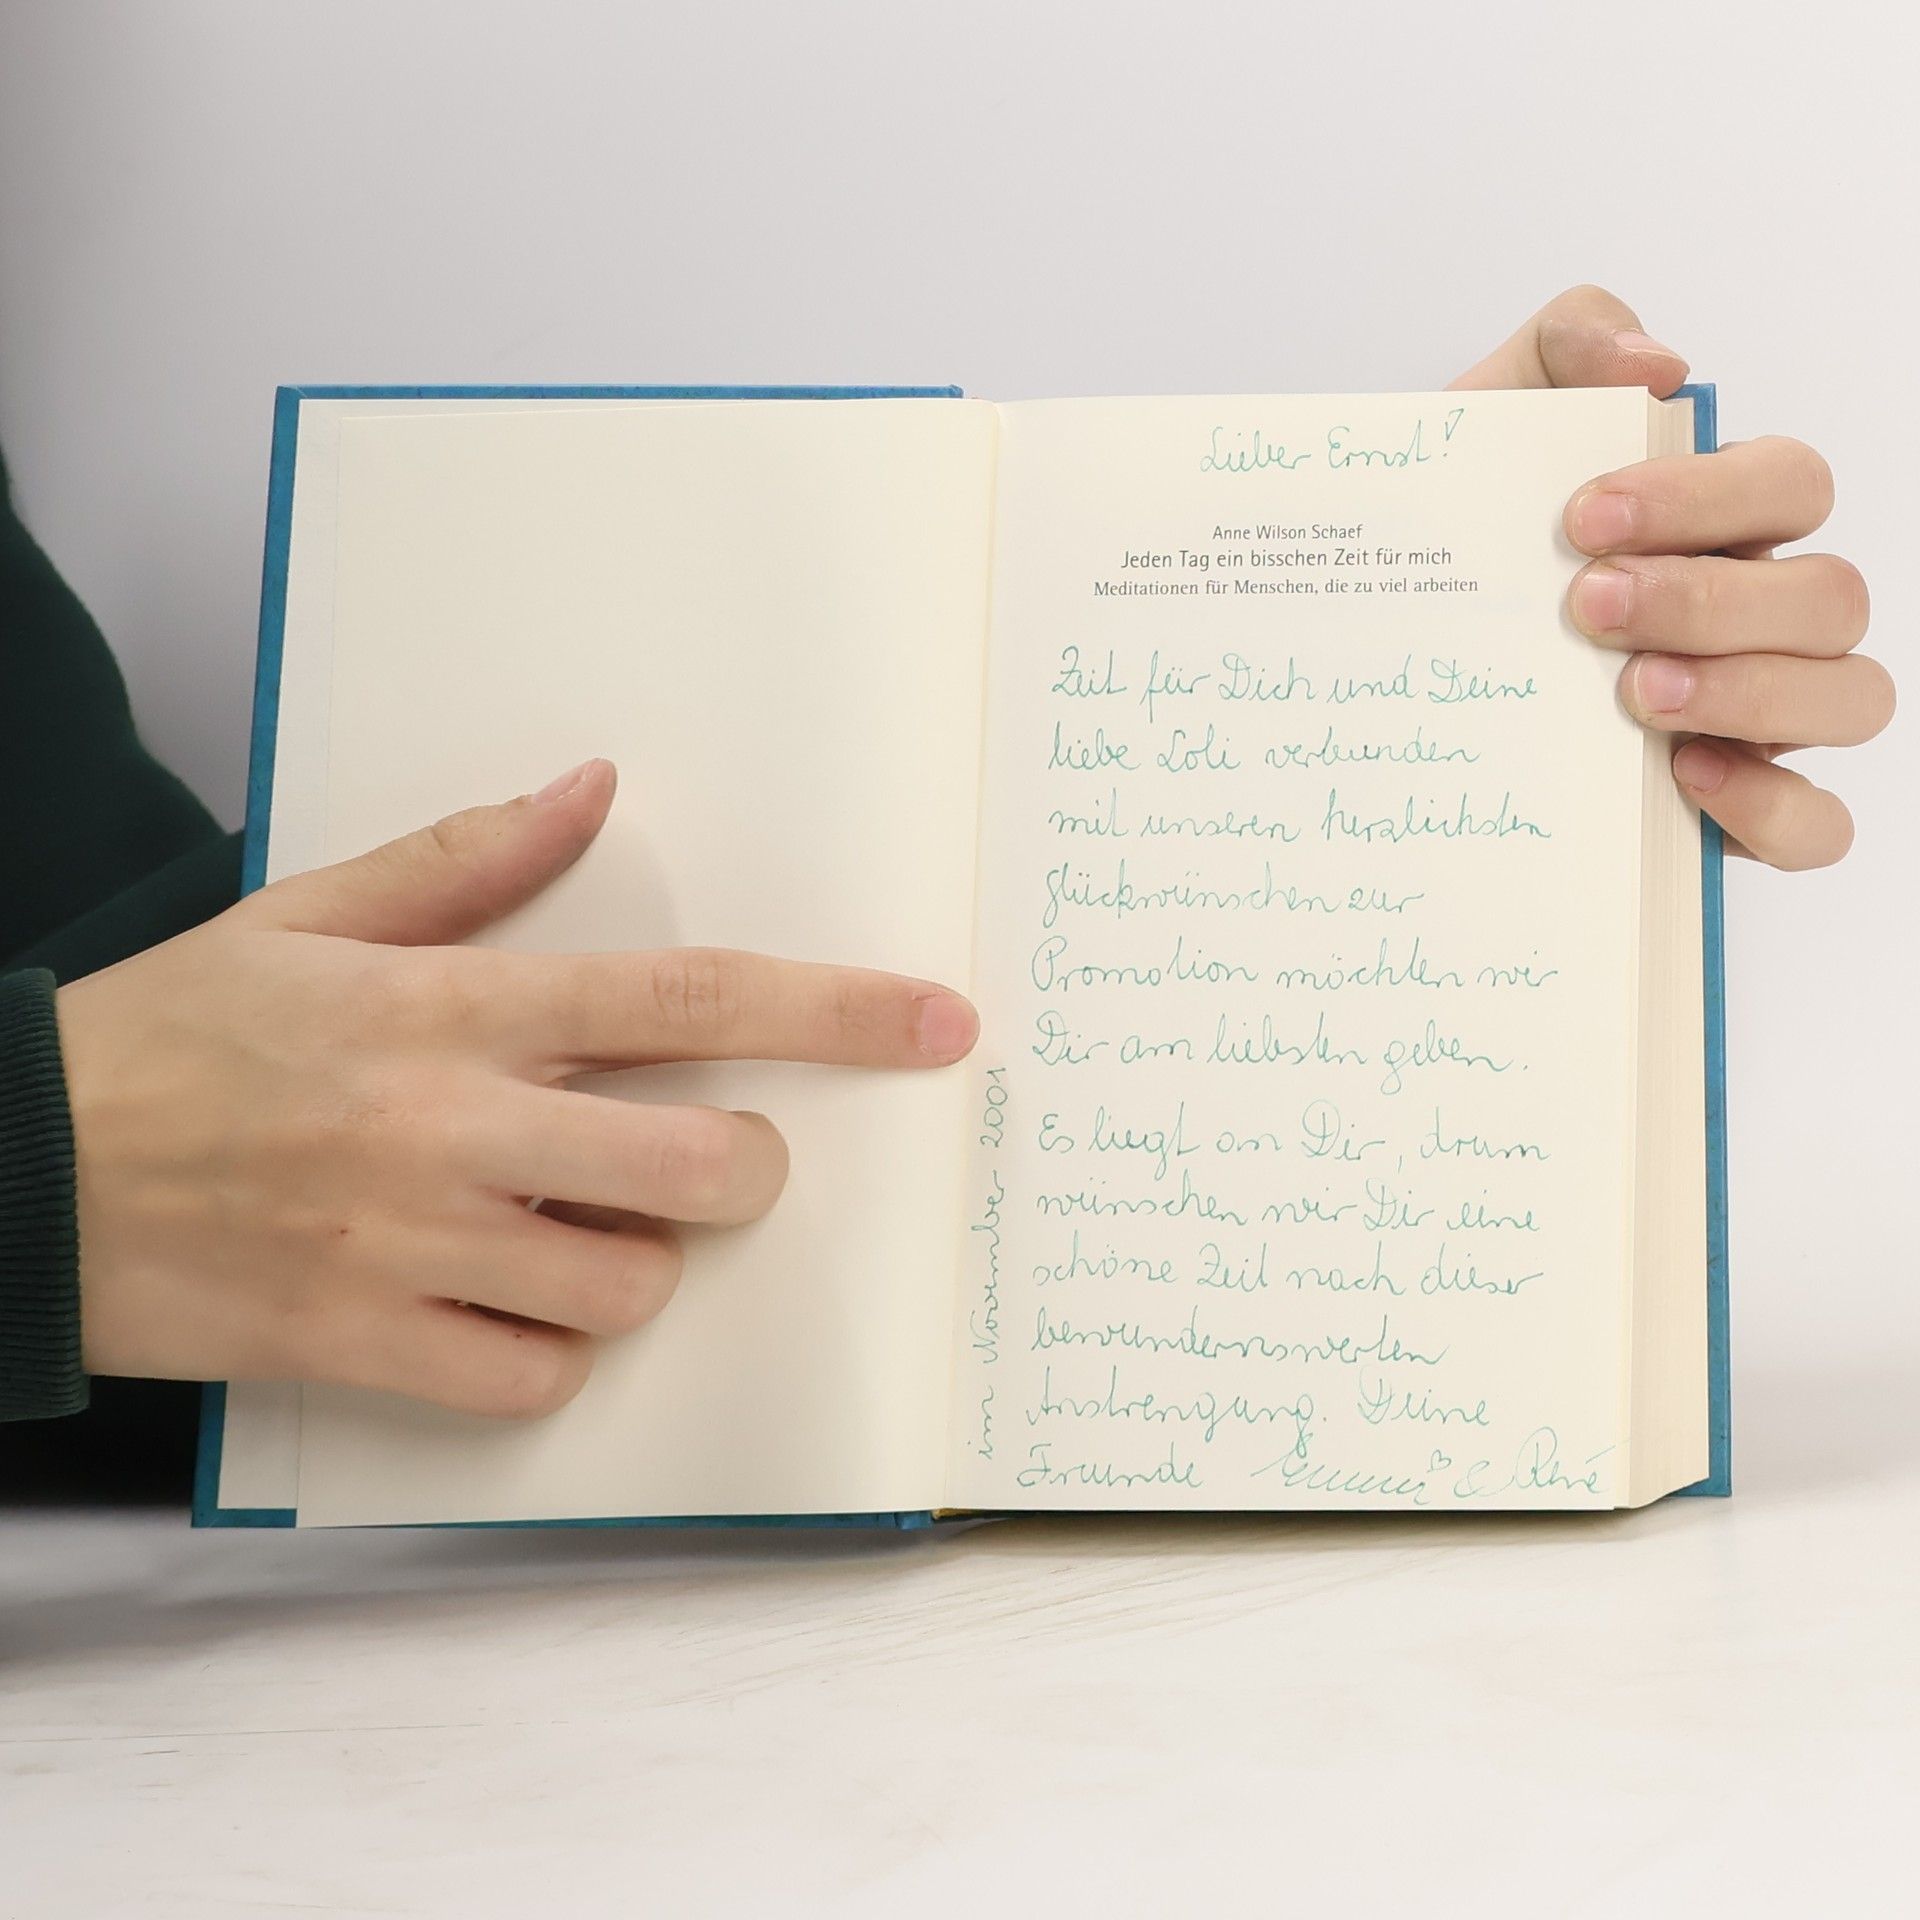 Lieber Ernst!
Anne Wilson Schaef
Jeden Tag ein bisschen Zeit für mich
Meditationen für Menschen, die zu viel arbeiten
Zeit für Dich und Deine
liebe Loli verbunden
mit unseren herzlichsten
glückwünschen zur
Promotion möchten wir
Dir am liebsten geben.
Es liegt an Dir, drum
wünschen wir Dir eine
schöne Zeit nach dieser
bewundernswerten
Anstrengung. Deine
Freunde & René
im November 2001